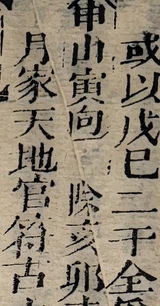 或以戊巳二干全
甲山寅向　除亥卯
月家天地官符占